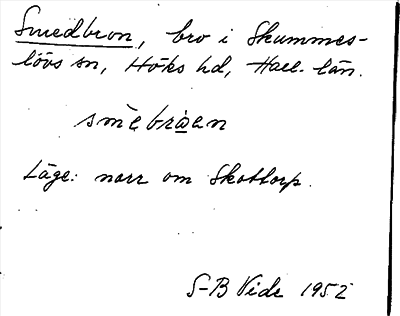 Smedbron, bro i Skummes-
lövs sn, Höks hd, Hall. län.
smèbråen
Läge: norr om Skottorp.
S-B Vide 1952